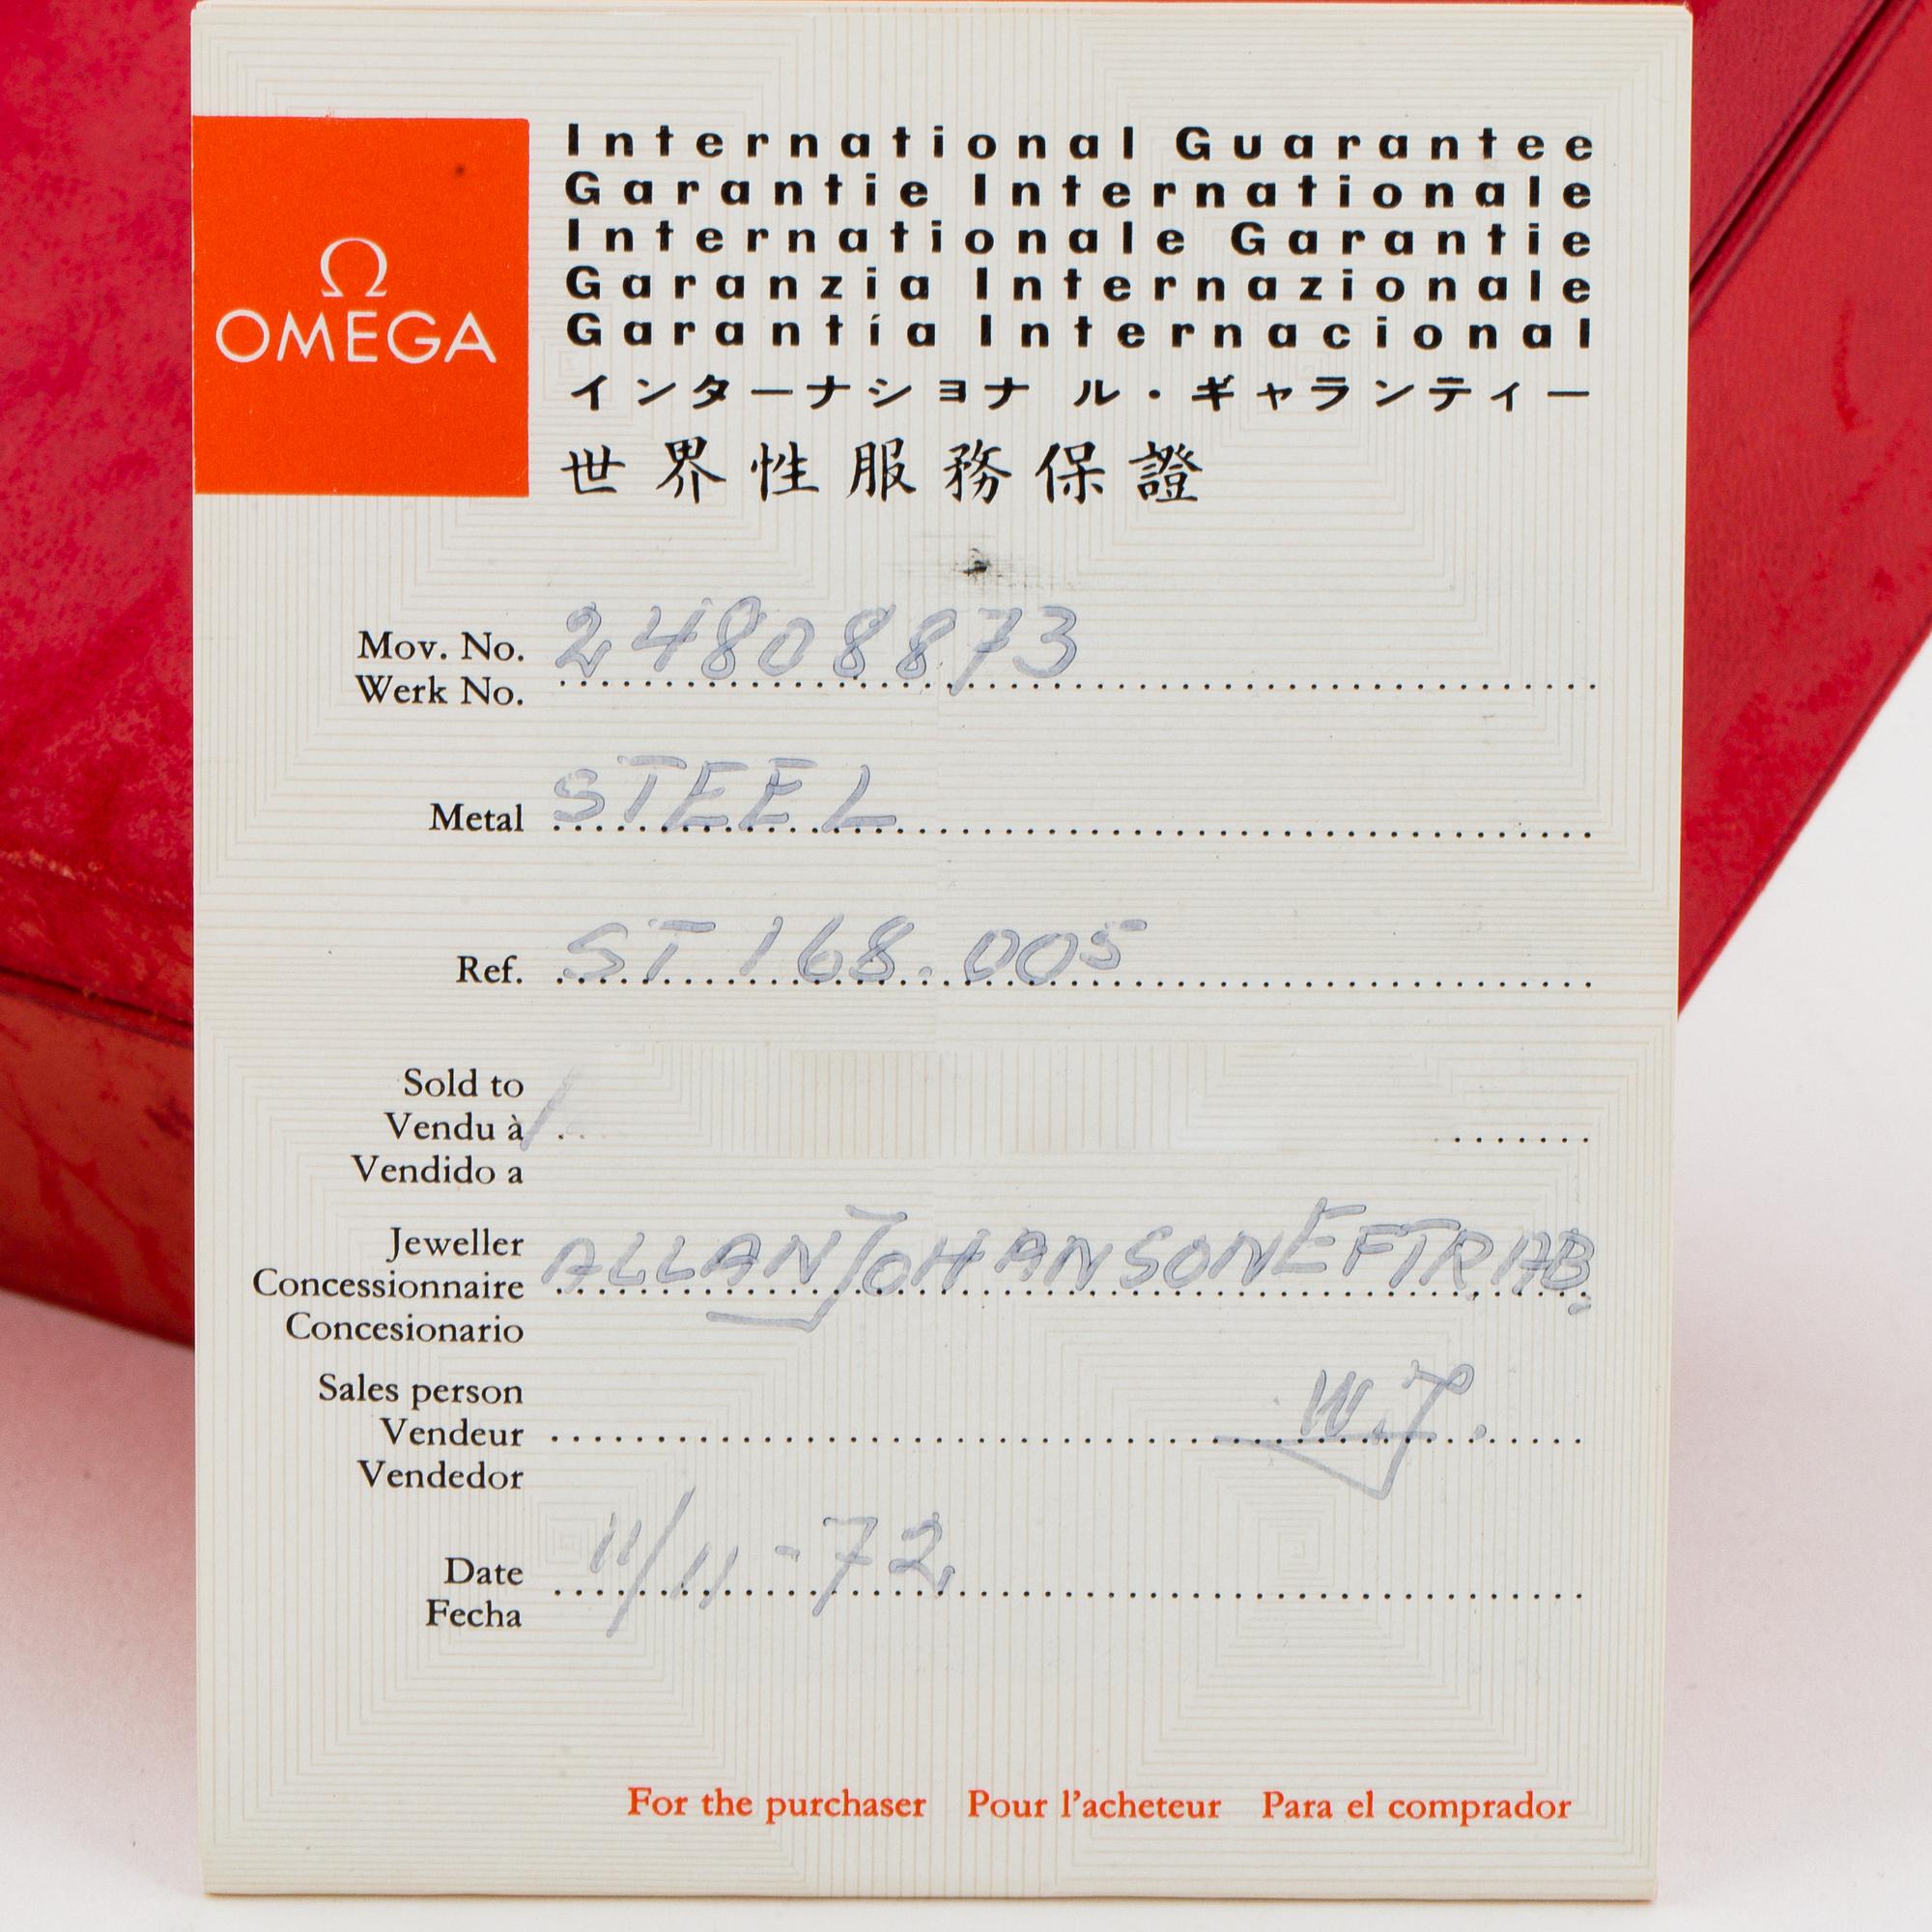 Ω
OMEGA
International Guarantee
Garantie Internationale
Internationale Garantie
Garanzia Internazionale
Garantía Internacional
インターナショナル・ギャランティー
世界性服務保證
Mov. No. 24808873
Werk No.
Metal STEEL
Ref. ST 168.005
Sold to
Vendu à
Vendido a
Jeweller
Concessionnaire ALLAN JOHANSON EFTR AB.
Concesionario
Sales person
Vendeur W.J.
Vendedor
Date 11/11-72
Fecha
For the purchaser Pour l'acheteur Para el comprador